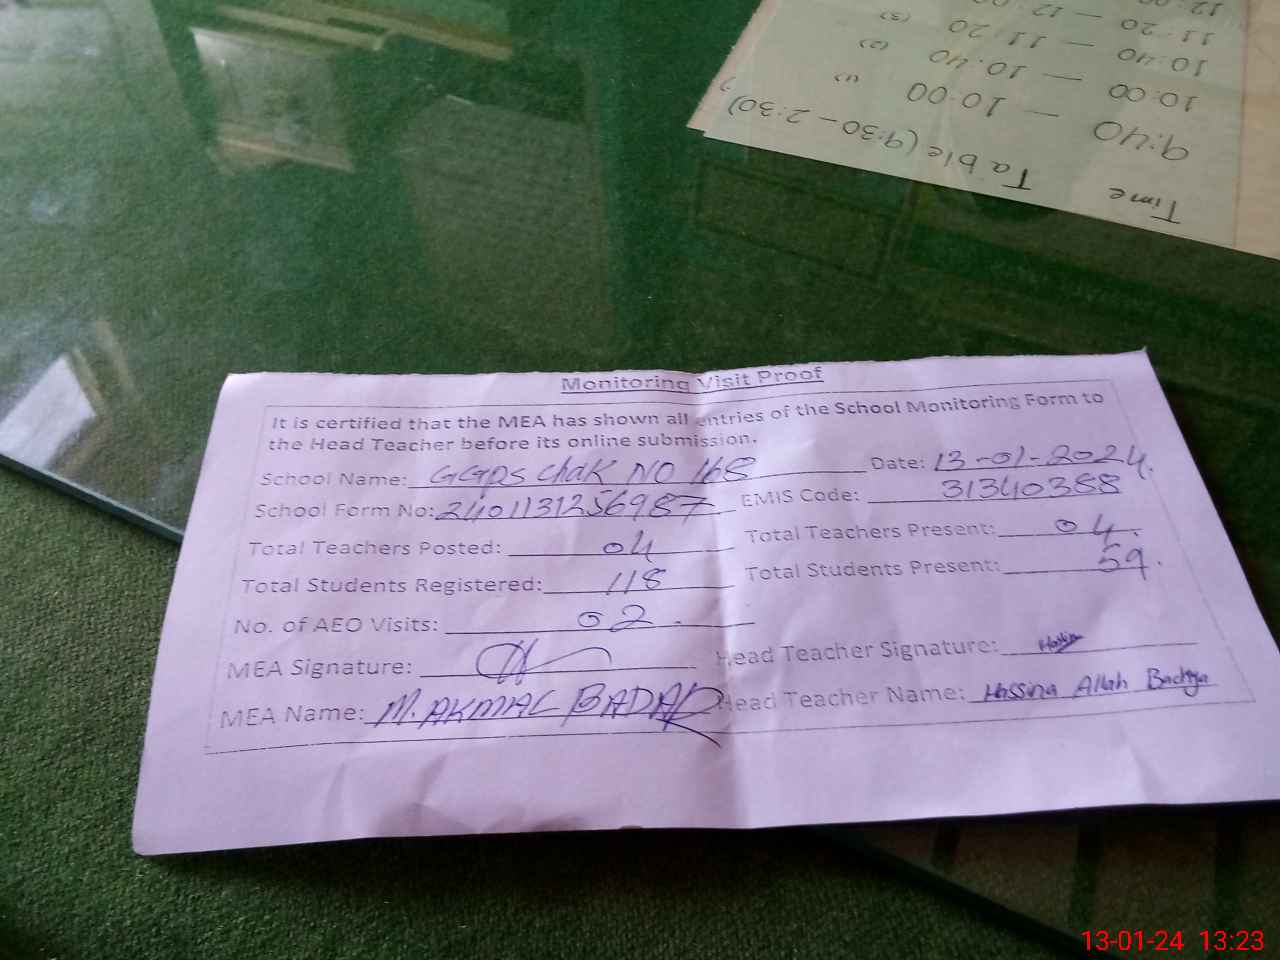 Monitoring Visit Proof
It is certified that the MEA has shown all entries of the School Monitoring Form to
the Head Teacher before its online submission.
School Name: GGPS Chak NO 168 Date: 13-01-2024.
School Form No: 2401131256987 EMIS Code: 31340388
Total Teachers Posted: 04 Total Teachers Present: 04.
Total Students Registered: 118 Total Students Present: 59.
No. of AEO Visits: 02.
MEA Signature: Head Teacher Signature:
MEA Name: M. AKMAL BADAR Head Teacher Name: Hassina Allah Bachya
Time Table (9:30 - 2:30)
9:40 — 10:00 (1)
10:00 — 10:40 (2)
10:40 — 11:20 (3)
11:20 — 12:00
13-01-24 13:23